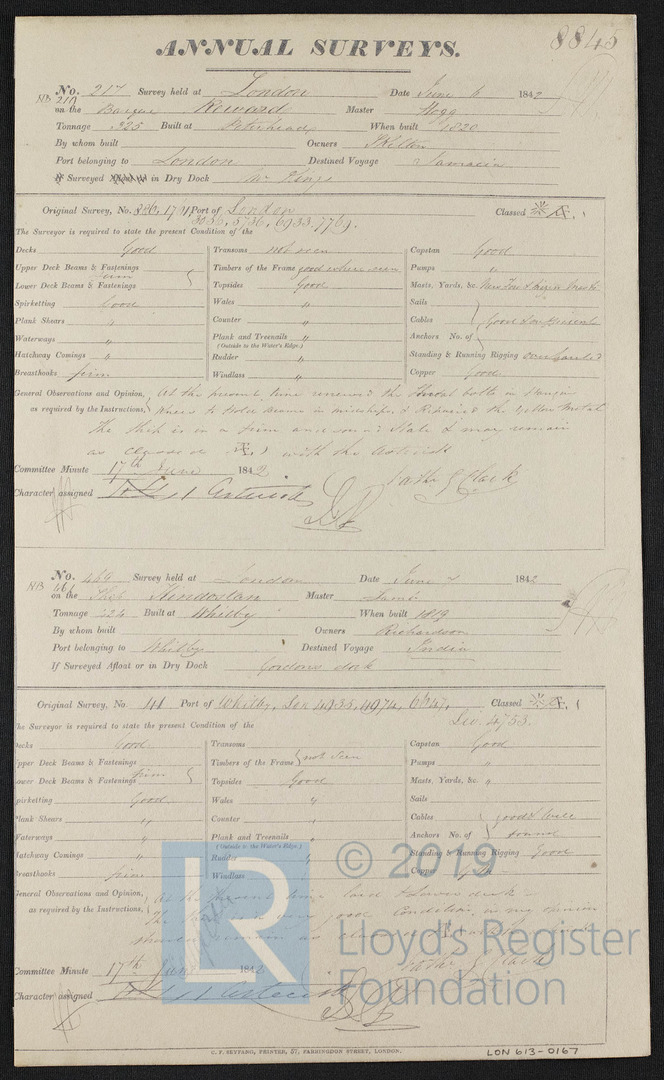 8845
ANNUAL SURVEYS.
No. 217 Survey held at London Date June 6 1842
NB 210
on the Barque Reward Master Hogg
Tonnage 325 Built at Peterhead When built 1820
By whom built Owners
Port belonging to London Destined Voyage Jamaica
If Surveyed Afloat or in Dry Dock Mr Kings
Original Survey, No. 1791 Port of London Classed Æ 1
3036, 5736, 6933. 7769.
The Surveyor is required to state the present Condition of the
Decks Good Transoms not seen Capstan Good
Upper Deck Beams & Fastenings Timbers of the Frame good where seen Pumps "
firm
Lower Deck Beams & Fastenings Topsides Good Masts, Yards, &c. New Fore &
Spirketting Good Wales " Sails
Plank Shears " Counter " Cables Good & sufficient
Waterways " Plank and Treenails " Anchors No. of
(Outside to the Water's Edge.)
Hatchway Comings " Rudder " Standing & Running Rigging overhauled
Breasthooks firm Windlass " Copper Good
General Observations and Opinion, At the present time renewed the throat bolts in hanging
as required by the Instructions, knees to Hold beams in midships, & Repaired the Yellow Metal
The Ship is in a firm and sound State & may remain
as classed Æ 1 with the asterisk
Committee Minute 17th June 1842 Nathl G Clark
Character assigned A 1 Asterisk
No. 469 Survey held at London Date June 7 1842
NB 461
on the Ship Hindostan Master
Tonnage 424 Built at Whitby When built 1819
By whom built Owners Richardson
Port belonging to Whitby Destined Voyage India
If Surveyed Afloat or in Dry Dock Gordons dock
Original Survey, No 41 Port of Whitby, Lon 4935, 4974, 6647, Classed Æ 1
Liv. 4753.
The Surveyor is required to state the present Condition of the
Decks Good Transoms Capstan Good
Upper Deck Beams & Fastenings Timbers of the Frame not seen Pumps "
firm
Lower Deck Beams & Fastenings Topsides Good Masts, Yards, &c. "
Spirketting Good Wales " Sails
Plank Shears " Counter " Cables good & well
Waterways " Plank and Treenails " Anchors No. of found
(Outside to the Water's Edge.)
Hatchway Comings " Rudder " Standing & Running Rigging Good
Breasthooks firm Windlass Copper
General Observations and Opinion, At the present time laid a Lower deck
as required by the Instructions, The Ship is in very good Condition, in my opinion
should remain as classed Æ
Committee Minute 17th June 1842 Nathl G Clark
Character assigned A 1 Asterisk
© 2019
LR
Lloyd's Register
Foundation
C. F. SEYFANG, PRINTER, 57, FARRINGDON STREET, LONDON.
LON 613-0167